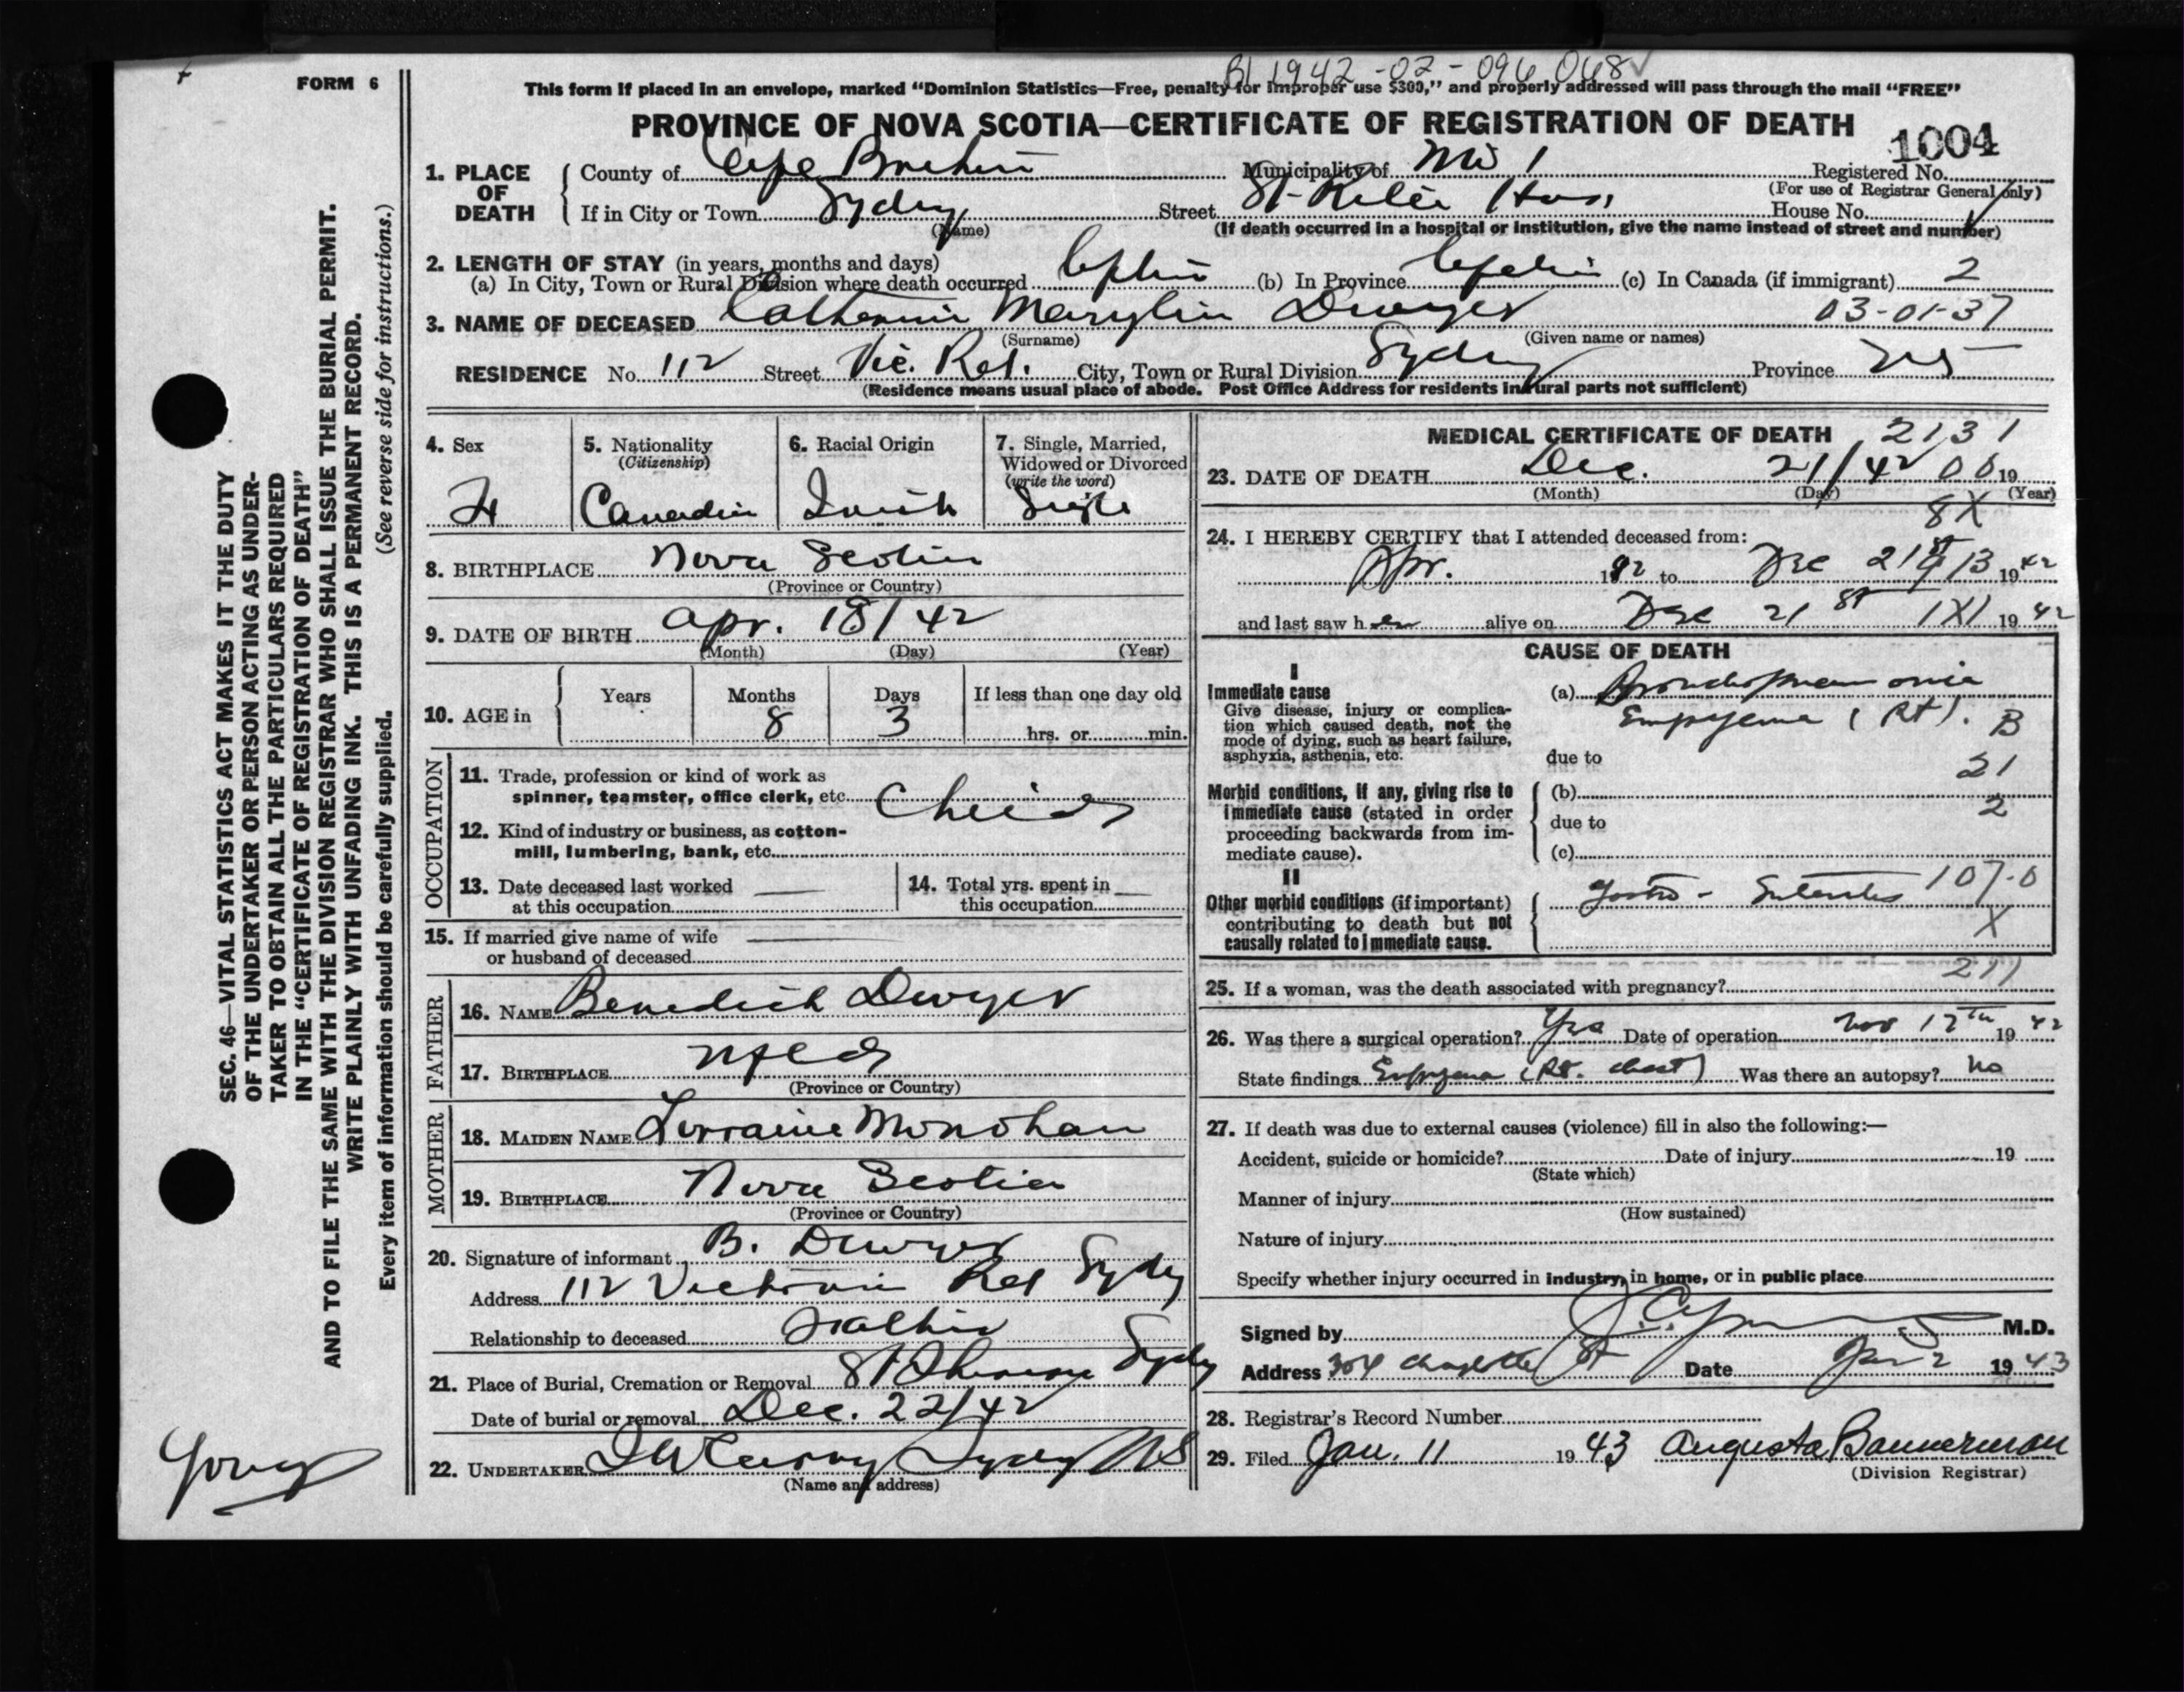 FORM 6
BI 1942-02-096048
This form if placed in an envelope, marked “Dominion Statistics—Free, penalty for improper use $300,” and properly addressed will pass through the mail “FREE”
PROVINCE OF NOVA SCOTIA—CERTIFICATE OF REGISTRATION OF DEATH
1004
1. PLACE OF DEATH
County of Cape Breton Municipality of No 1 Registered No.
(For use of Registrar General only)
If in City or Town Sydney Street St. Rita Hos. House No.
(Name) (If death occurred in a hospital or institution, give the name instead of street and number)
2. LENGTH OF STAY (in years, months and days)
(a) In City, Town or Rural Division where death occurred (b) In Province (c) In Canada (if immigrant) 2
3. NAME OF DECEASED Catherine Marylin Dwyer 03-01-37
(Surname) (Given name or names)
RESIDENCE No. 112 Street Vic. Rd. City, Town or Rural Division Sydney Province NS
(Residence means usual place of abode. Post Office Address for residents in rural parts not sufficient)
4. Sex
F
5. Nationality
(Citizenship)
Canadian
6. Racial Origin
Irish
7. Single, Married,
Widowed or Divorced
(write the word)
Single
8. BIRTHPLACE Nova Scotia
(Province or Country)
9. DATE OF BIRTH Apr. 18/42
(Month) (Day) (Year)
10. AGE in
Years Months Days If less than one day old
8 3 hrs. or min.
OCCUPATION
11. Trade, profession or kind of work as
spinner, teamster, office clerk, etc. Child
12. Kind of industry or business, as cotton-
mill, lumbering, bank, etc.
13. Date deceased last worked
at this occupation
14. Total yrs. spent in
this occupation
15. If married give name of wife
or husband of deceased
FATHER
16. NAME Benedict Dwyer
17. BIRTHPLACE Nfld
(Province or Country)
MOTHER
18. MAIDEN NAME Lorraine Monohan
19. BIRTHPLACE Nova Scotia
(Province or Country)
20. Signature of informant B. Dwyer
Address 112 Victoria Rd Sydney
Relationship to deceased Father
21. Place of Burial, Cremation or Removal St Sydney
Date of burial or removal Dec. 22/42
22. UNDERTAKER Sydney NS
(Name and address)
MEDICAL CERTIFICATE OF DEATH 2131
23. DATE OF DEATH Dec. 21/42 00 19
(Month) (Day) (Year)
8X
24. I HEREBY CERTIFY that I attended deceased from:
Apr. 1942 to Dec 21st 13 1942
and last saw her alive on Dec 21st 1X1 1942
CAUSE OF DEATH
I
Immediate cause
Give disease, injury or complica-
tion which caused death, not the
mode of dying, such as heart failure,
asphyxia, asthenia, etc.
(a) Bronchopneumonia
Empyema (Rt). B
due to
21
Morbid conditions, if any, giving rise to
immediate cause (stated in order
proceeding backwards from im-
mediate cause).
(b)
2
due to
(c)
II
Other morbid conditions (if important)
contributing to death but not
causally related to immediate cause.
Gastro-Enteritis 107-0
X
211
25. If a woman, was the death associated with pregnancy?
26. Was there a surgical operation? Yes Date of operation Nov 12th 1942
State findings Empyema (Rt. chest) Was there an autopsy? No
27. If death was due to external causes (violence) fill in also the following:—
Accident, suicide or homicide? Date of injury 19
(State which)
Manner of injury
(How sustained)
Nature of injury
Specify whether injury occurred in industry, in home, or in public place
Signed by M.D.
Address 304 Charlotte St Date Jan 2 1943
28. Registrar’s Record Number
29. Filed Jan. 11 1943 Augusta Bannerman
(Division Registrar)
SEC. 46—VITAL STATISTICS ACT MAKES IT THE DUTY
OF THE UNDERTAKER OR PERSON ACTING AS UNDER-
TAKER TO OBTAIN ALL THE PARTICULARS REQUIRED
IN THE “CERTIFICATE OF REGISTRATION OF DEATH”
AND TO FILE THE SAME WITH THE DIVISION REGISTRAR WHO SHALL ISSUE THE BURIAL PERMIT.
WRITE PLAINLY WITH UNFADING INK. THIS IS A PERMANENT RECORD.
Every item of information should be carefully supplied. (See reverse side for instructions.)